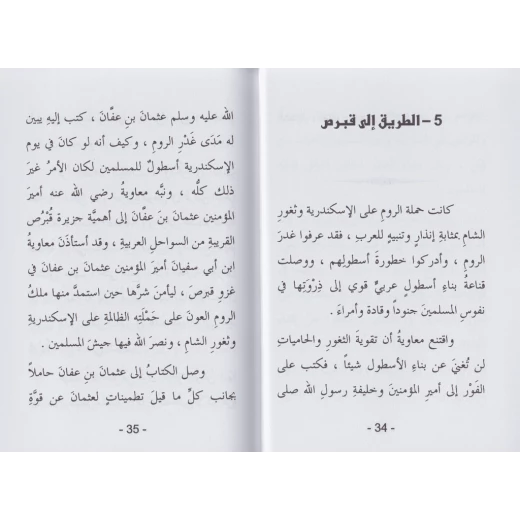 5 – الطريق إلى قبرص
كانت حملة الروم على الإسكندرية وثغورِ
الشام بمثابةِ إنذارٍ وتنبيهٍ للعربِ ، فقد عرفوا غدرَ
الرومِ ، وأدركوا خطورةَ أسطولِهم ، ووصلت
قناعةُ بناءِ أسطولٍ عربيٍّ قوي إلى ذِرْوَتِها في
نفوسِ المسلمينَ جنوداً وقادة وأمراءَ .
واقتنع معاويةُ أن تقويةَ الثغورِ والحامياتِ
لن تُغنيَ عن بناءِ الأسطولِ شيئاً ، فكتب على
الفَوْرِ إلى أميرِ المؤمنينَ وخليفةِ رسولِ الله صلى
- 34 -
الله عليه وسلم عثمانَ بنِ عفَّانَ ، كتب إليهِ يبين
له مَدَى غَدْرِ الرومِ ، وكيف أنه لو كانَ في يوم
الإسكندرية أسطولٌ للمسلمين لكان الأمرُ غيرَ
ذلك كلِّه ، ونبَّه معاويةُ رضي الله عنه أميرَ
المؤمنين عثمانَ بنَ عفَّانَ إلى أهميَّةِ جزيرة قُبْرُص
القريبةِ من السواحلِ العربيةِ ، وقد استأذَنَ معاويةُ
ابن أبي سفيانَ أميرَ المؤمنين عثمانَ بن عفانَ في
غزوِ قبرصَ ، ليأمنَ شرَّها حين استمدَّ منها ملكُ
الرومِ العونَ على حَمْلَتِه الظالمةِ على الإسكندريةِ
وثغورِ الشامِ ، ونصرَ الله فيها جيشَ المسلمين .
وصل الكتابُ إلى عثمانَ بنِ عفانَ حاملاً
بجانب كلِّ ما قيلَ تطميناتٍ لعثمانَ عن قوَّةِ
- 35 -